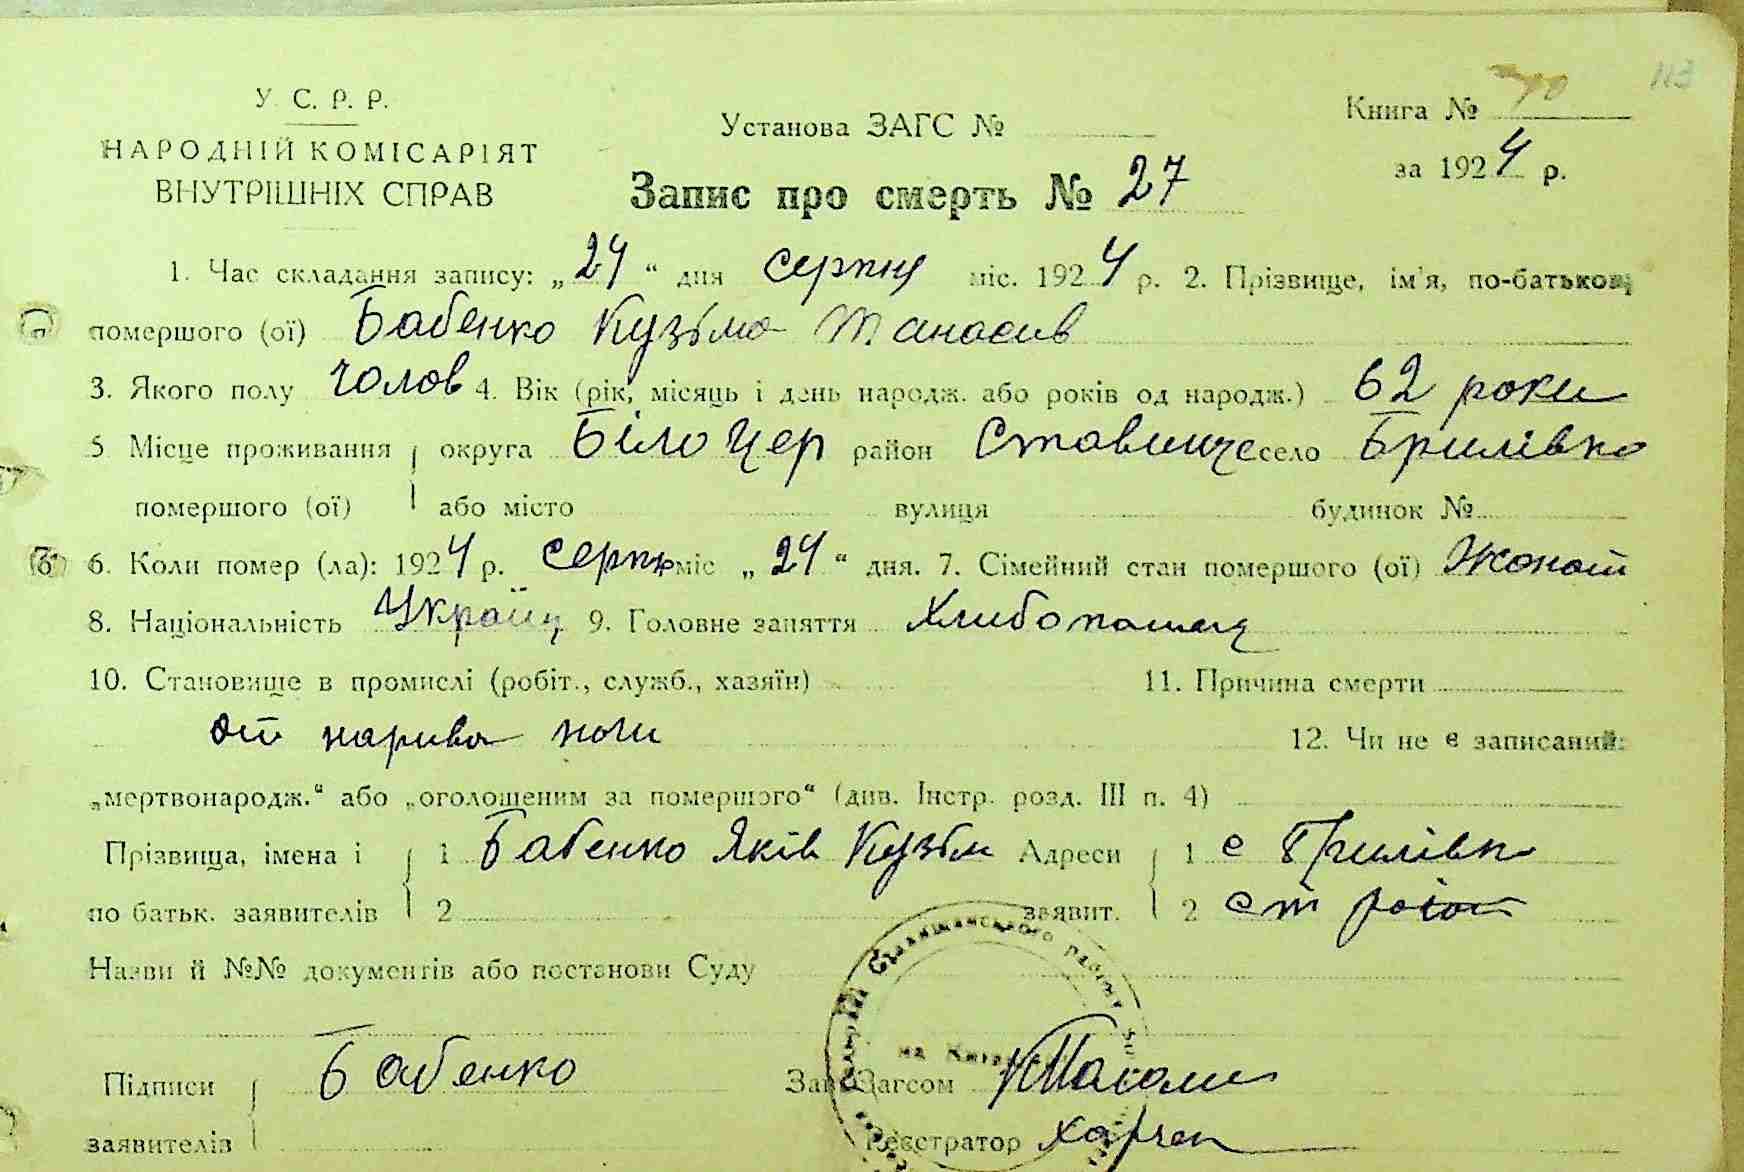 113
У. С. Р. Р.
НАРОДНІЙ КОМІСАРІЯТ
ВНУТРІШНІХ СПРАВ
Установа ЗАГС №
Книга № 70
за 1924 р.
Запис про смерть № 27
1. Час складання запису: „24“ дня серпня міс. 1924 р. 2. Прізвище, ім'я, по-батькові
помершого (ої) Бабенко Кузьма Танасів
3. Якого полу чолов 4. Вік (рік, місяць і день народж. або років од народж.) 62 роки
5 Місце проживання округа БілоЦер район Ставище село Брилівка
помершого (ої) або місто вулиця будинок №
6. Коли помер (ла): 1924 р. серпня міс „24“ дня. 7. Сімейний стан помершого (ої) Жонат
8. Національність Україн 9. Головне заняття Хлибопашец
10. Становище в промислі (робіт., служб., хазяїн) 11. Причина смерти
от нарива ноги 12. Чи не є записаний:
„мертвонародж.“ або „оголошеним за помершого“ (див. Інстр. розд. III п. 4)
Прізвища, імена і 1 Бабенко Яків Кузьм Адреси 1 с Брилівк
по батьк. заявителів 2 заявит. 2 ст район
Назви й №№ документів або постанови Суду
Підписи Бабенко Зав Загсом
заявителів Реєстратор Харчен